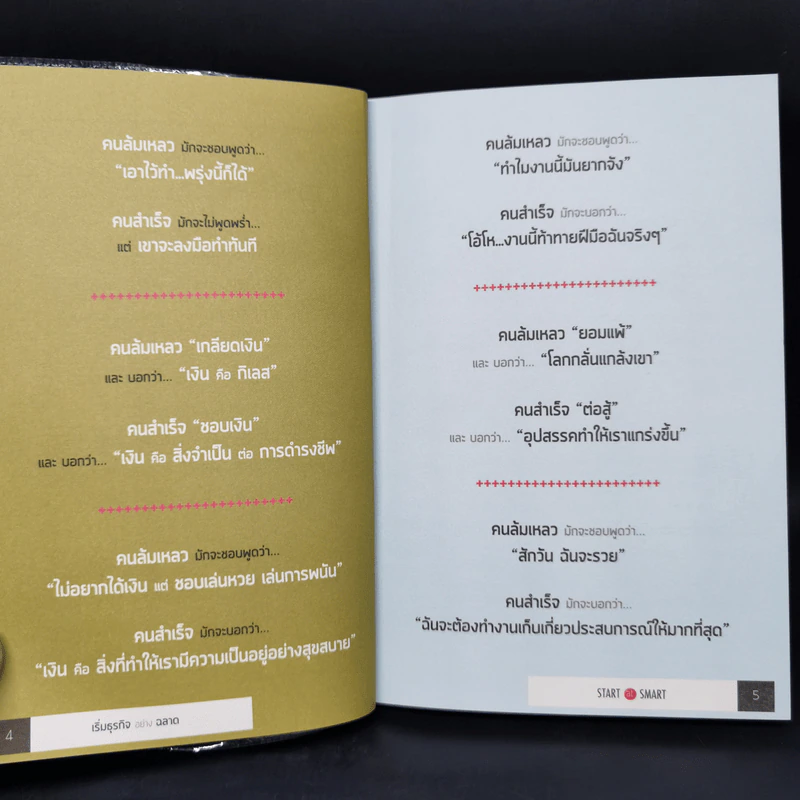 คนล้มเหลว มักจะชอบพูดว่า...
“เอาไว้ทำ...พรุ่งนี้ก็ได้”
คนสำเร็จ มักจะไม่พูดพร่ำ...
แต่ เขาจะลงมือทำทันที
++++++++++++++++++++++++
คนล้มเหลว “เกลียดเงิน”
และ บอกว่า... “เงิน คือ กิเลส”
คนสำเร็จ “ชอบเงิน”
และ บอกว่า... “เงิน คือ สิ่งจำเป็น ต่อ การดำรงชีพ”
++++++++++++++++++++++++
คนล้มเหลว มักจะชอบพูดว่า...
“ไม่อยากได้เงิน แต่ ชอบเล่นหวย เล่นการพนัน”
คนสำเร็จ มักจะบอกว่า...
“เงิน คือ สิ่งที่ทำให้เรามีความเป็นอยู่อย่างสุขสบาย”
4 เริ่มธุรกิจ อย่าง ฉลาด
คนล้มเหลว มักจะชอบพูดว่า...
“ทำไมงานนี้มันยากจัง”
คนสำเร็จ มักจะบอกว่า...
“โอ้โห...งานนี้ท้าทายฝีมือฉันจริงๆ”
++++++++++++++++++++++++
คนล้มเหลว “ยอมแพ้”
และ บอกว่า... “โลกกลั่นแกล้งเขา”
คนสำเร็จ “ต่อสู้”
และ บอกว่า... “อุปสรรคทำให้เราแกร่งขึ้น”
++++++++++++++++++++++++
คนล้มเหลว มักจะชอบพูดว่า...
“สักวัน ฉันจะรวย”
คนสำเร็จ มักจะบอกว่า...
“ฉันจะต้องทำงานเก็บเกี่ยวประสบการณ์ให้มากที่สุด”
START SMART 5